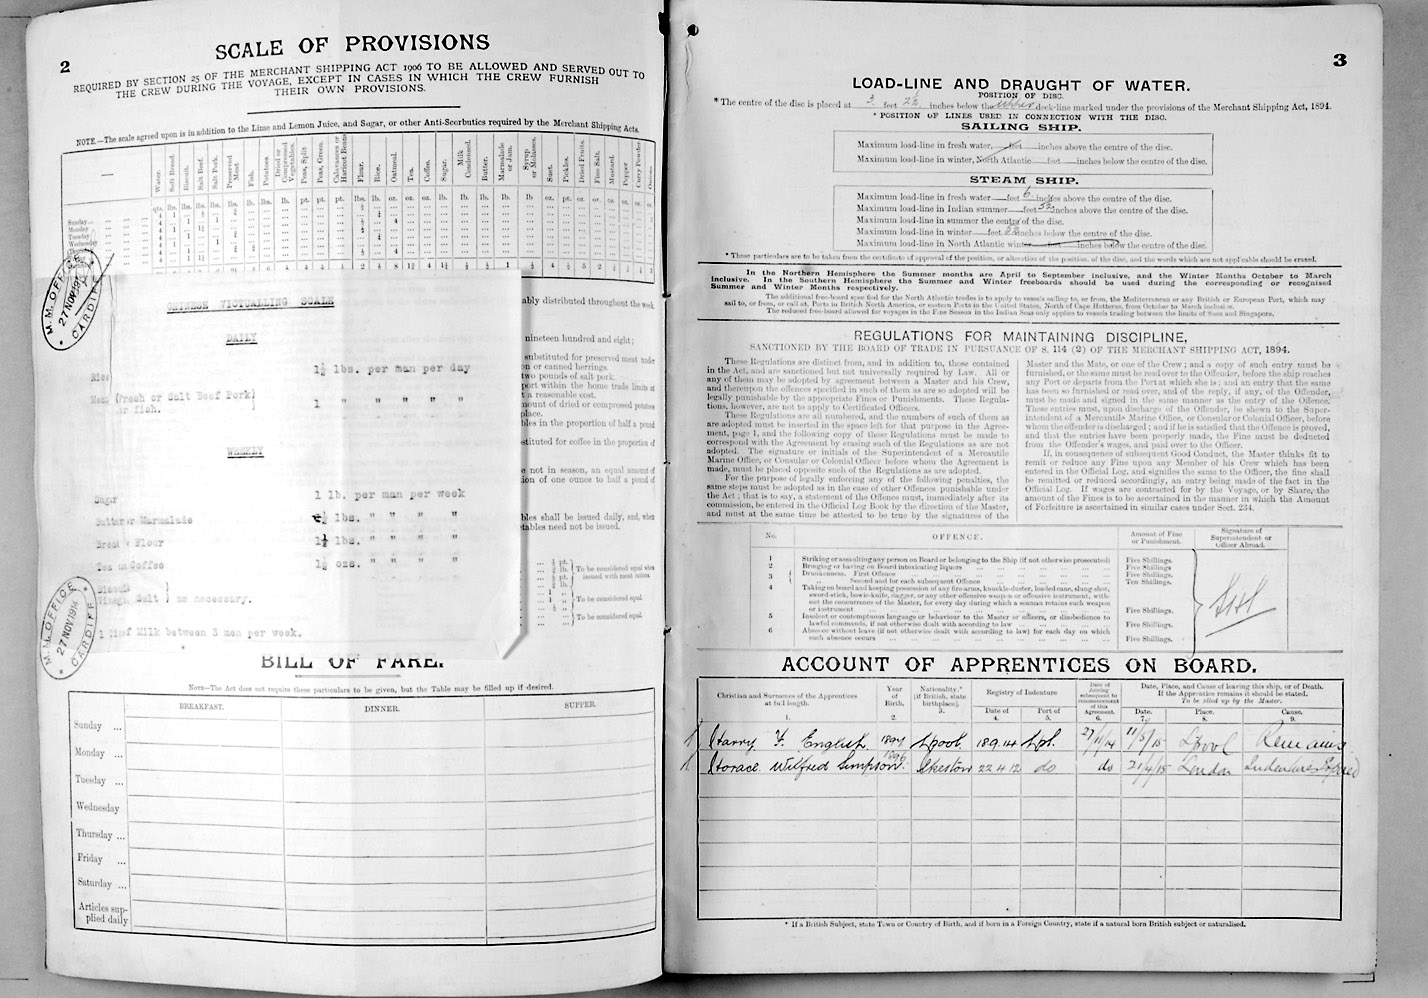 2
SCALE OF PROVISIONS
REQUIRED BY SECTION 25 OF THE MERCHANT SHIPPING ACT 1906 TO BE ALLOWED AND SERVED OUT TO
THE CREW DURING THE VOYAGE, EXCEPT IN CASES IN WHICH THE CREW FURNISH
THEIR OWN PROVISIONS.
NOTE.—The scale agreed upon is in addition to the Lime and Lemon Juice, and Sugar, or other Anti-Scorbutics required by the Merchant Shipping Acts.
Water. Soft Bread. Biscuit. Salt Beef. Salt Pork. Preserved Meat. Fish. Potatoes. Dried or Compressed Vegetables. Peas, Split Peas, Green. Calavances or Haricot Beans Flour. Rice. Oatmeal. Tea. Coffee. Sugar. Milk Condensed. Butter. Marmalade or Jam. Syrup or Molasses. Suet. Pickles. Dried Fruits. Fine Salt. Mustard. Pepper Curry Powder Onions
Sunday
Monday
Tuesday
Wednesday
M.M. OFFICE
27 NOV 1914
CARDIFF
CHINESE VICTUALLING SCALE
DAILY
Rice 1½ lbs. per man per day
Meat (Fresh or Salt Beef Pork)
or fish. 1 " " " " "
WEEKLY
Sugar 1 lb. per man per week
Butter or Marmalade ½ lbs. " " " "
Bread & Flour 1½ lbs. " " " "
Tea Coffee 1½ ozs. " " " "
Salt as necessary.
1 Tin of Milk between 3 men per week.
ably distributed throughout the week.
nineteen hundred and eight;
substituted for preserved meat under
n or canned herrings.
two pounds of salt pork.
port within the home trade limits at
t a reasonable cost.
mount of dried or compressed potatoes
place.
bles in the proportion of half a pound
stituted for coffee in the proportion of
e not in season, an equal amount of
ion of one ounce to half a pound of
bles shall be issued daily, and, when
tables need not be issued.
To be considered equal
when issued with meat rations.
To be considered equal
To be considered equal
M.M. OFFICE
27 NOV 1914
CARDIFF
BILL OF FARE.
NOTE—The Act does not require these particulars to be given, but the Table may be filled up if desired.
BREAKFAST. DINNER. SUPPER.
Sunday ...
Monday ...
Tuesday ...
Wednesday
Thursday ...
Friday ...
Saturday ...
Articles sup-
plied daily
3
LOAD-LINE AND DRAUGHT OF WATER.
POSITION OF DISC.
* The centre of the disc is placed at 3 feet 2½ inches below the upper deck-line marked under the provisions of the Merchant Shipping Act, 1894.
* POSITION OF LINES USED IN CONNECTION WITH THE DISC.
SAILING SHIP.
Maximum load-line in fresh water, feet inches above the centre of the disc.
Maximum load-line in winter, North Atlantic feet inches below the centre of the disc.
STEAM SHIP.
Maximum load-line in fresh water feet 6 inches above the centre of the disc.
Maximum load-line in Indian summer feet 5½ inches above the centre of the disc.
Maximum load-line in summer the centre of the disc.
Maximum load-line in winter feet 5½ inches below the centre of the disc.
Maximum load-line in North Atlantic winter feet inches below the centre of the disc.
* These particulars are to be taken from the certificate of approval of the position, or alteration of the position, of the disc, and the words which are not applicable should be erased.
In the Northern Hemisphere the Summer months are April to September inclusive, and the Winter Months October to March
inclusive. In the Southern Hemisphere the Summer and Winter freeboards should be used during the corresponding or recognised
Summer and Winter Months respectively.
The additional free-board specified for the North Atlantic trades is to apply to vessels sailing to, or from, the Mediterranean or any British or European Port, which may
sail to, or from, or call at, Ports in British North America, or eastern Ports in the United States, North of Cape Hatteras, from October to March inclusive.
The reduced free-board allowed for voyages in the Fine Season in the Indian Seas only applies to vessels trading between the limits of Suez and Singapore.
REGULATIONS FOR MAINTAINING DISCIPLINE,
SANCTIONED BY THE BOARD OF TRADE IN PURSUANCE OF S. 114 (2) OF THE MERCHANT SHIPPING ACT, 1894.
These Regulations are distinct from, and in addition to, those contained
in the Act, and are sanctioned but not universally required by Law. All or
any of them may be adopted by agreement between a Master and his Crew,
and thereupon the offences specified in such of them as are so adopted will be
legally punishable by the appropriate Fines or Punishments. These Regula-
tions, however, are not to apply to Certificated Officers.
These Regulations are all numbered, and the numbers of such of them as
are adopted must be inserted in the space left for that purpose in the Agree-
ment, page 1, and the following copy of these Regulations must be made to
correspond with the Agreement by erasing such of the Regulations as are not
adopted. The signature or initials of the Superintendent of a Mercantile
Marine Office, or Consular or Colonial Officer before whom the Agreement is
made, must be placed opposite such of the Regulations as are adopted.
For the purpose of legally enforcing any of the following penalties, the
same steps must be adopted as in the case of other Offences punishable under
the Act; that is to say, a statement of the Offence must, immediately after its
commission, be entered in the Official Log Book by the direction of the Master,
and must at the same time be attested to be true by the signatures of the
Master and the Mate, or one of the Crew; and a copy of such entry must be
furnished, or the same must be read over to the Offender, before the ship reaches
any Port or departs from the Port at which she is; and an entry that the same
has been so furnished or read over, and of the reply, if any, of the Offender,
must be made and signed in the same manner as the entry of the Offence.
These entries must, upon discharge of the Offender, be shewn to the Super-
intendent of a Mercantile Marine Office, or Consular or Colonial Officer, before
whom the offender is discharged; and if he is satisfied that the Offence is proved,
and that the entries have been properly made, the Fine must be deducted
from the Offender's wages, and paid over to the Officer.
If, in consequence of subsequent Good Conduct, the Master thinks fit to
remit or reduce any Fine upon any Member of his Crew which has been
entered in the Official Log, and signifies the same to the Officer, the fine shall
be remitted or reduced accordingly, an entry being made of the fact in the
Official Log. If wages are contracted for by the Voyage, or by Share, the
amount of the Fines is to be ascertained in the manner in which the Amount
of Forfeiture is ascertained in similar cases under Sect. 234.
No. OFFENCE. Amount of Fine or Punishment. Signature of Superintendent or Officer Abroad.
1 Striking or assaulting any person on Board or belonging to the Ship (if not otherwise prosecuted) Five Shillings.
2 Bringing or having on Board intoxicating liquors Five Shillings.
3 Drunkenness. First Offence Five Shillings.
Second and for each subsequent Offence Ten Shillings.
4 Taking on board and keeping possession of any fire-arms, knuckle-duster, loaded cane, slung-shot,
sword-stick, bowie-knife, dagger, or any other offensive weapon or offensive instrument, with-
out the concurrence of the Master, for every day during which a seaman retains such weapon
or instrument Five Shillings.
5 Insolent or contemptuous language or behaviour to the Master or officers, or disobedience to
lawful commands, if not otherwise dealt with according to law Five Shillings.
6 Absence without leave (if not otherwise dealt with according to law) for each day on which
such absence occurs Five Shillings.
ACCOUNT OF APPRENTICES ON BOARD.
Christian and Surnames of the Apprentices at full length. 1.
Year of Birth. 2.
Nationality.* [if British, state birthplace]. 3.
Registry of Indenture
Date of 4. Port of 5.
Date of Joining subsequent to commencement of this Agreement. 6.
Date, Place, and Cause of leaving this ship, or of Death.
If the Apprentice remains it should be stated.
To be filled up by the Master.
Date. 7. Place. 8. Cause. 9.
Harry F. English 1897 Lpool. 18.9.14 Lpl. 27/11/14 11/5/15 Lpool Remains
Horace Wilfred Simpson. 1896 Ilkeston 22 4 12 do do 21/4/15 London Indentures Expired
* If a British Subject, state Town or Country of Birth, and if born in a Foreign Country, state if a natural born British subject or naturalised.